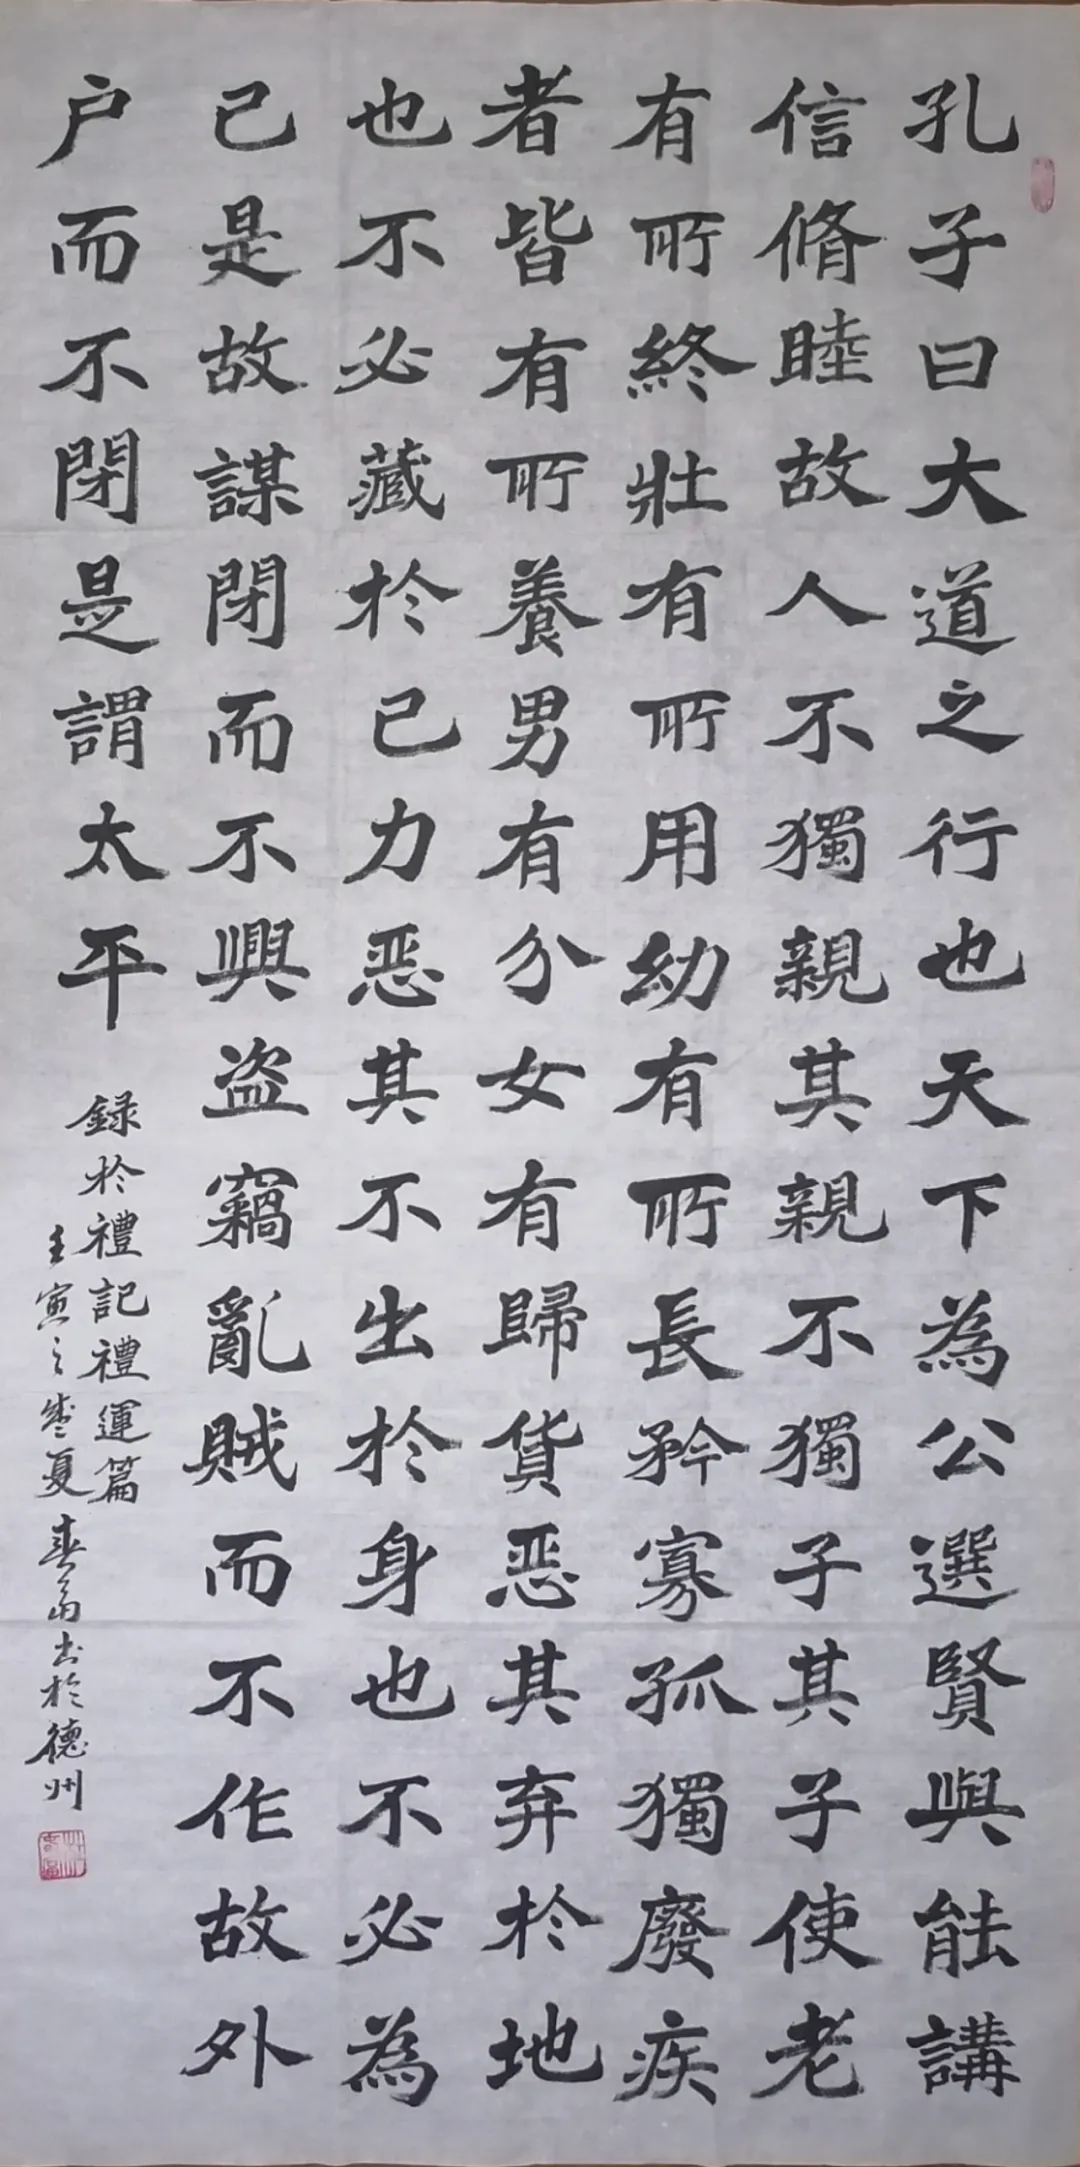 孔子曰大道之行也天下為公選賢與能講
信脩睦故人不獨親其親不獨子其子使老
有所終壯有所用幼有所長矜寡孤獨廢疾
者皆有所養男有分女有歸貨恶其弃於地
也不必藏於己力恶其不出於身也不必為
己是故謀閉而不興盗竊亂賊而不作故外
户而不閉是謂太平
録於禮記禮運篇
壬寅之盛夏
書於德州